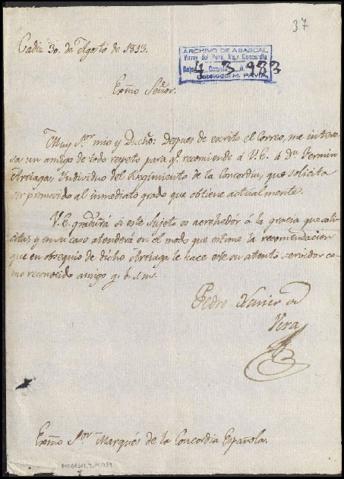 37
Cadiz 30. de Agosto de 1813.
ARCHIVO DE ABASCAL
Virrey del Perú, Mqs. Concordia
4 3 983
Exmo Señor.
Muy Sr. mio y Dueño: Despues de escrito el Correo, me intere-
sa, un amigo de todo respeto para qe. recomiende á V.E. á Dn. Fermin
Arriaga, Individuo del Regimiento de la Concordia, que solicita
ser promovido al inmediato grado que obtiene actualmente.
V.E. graduará si este Sujeto es acrehedor á la gracia que soli-
cita, y en su caso atenderá en el modo que estime la recomendacion
que en obsequio de dicho Arriaga le hace este su atento servidor co-
mo reconocido amigo q. b. s. m.
Pedro Xavier de
Vera
Exmo Sor. Marqués de la Concordia Española.